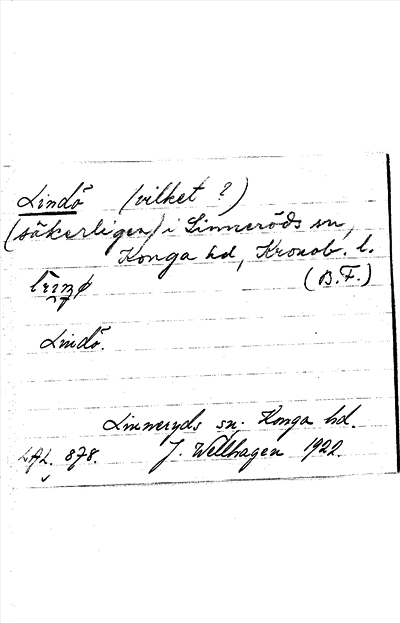 Lindö (vilket?)
(säkerligen) i Linneröds sn,
Konga hd, Kronob. l.
(B.F.)
Lindö.
Linneryds sn. Konga hd.
LAL. 878. J. Wellhagen 1922.